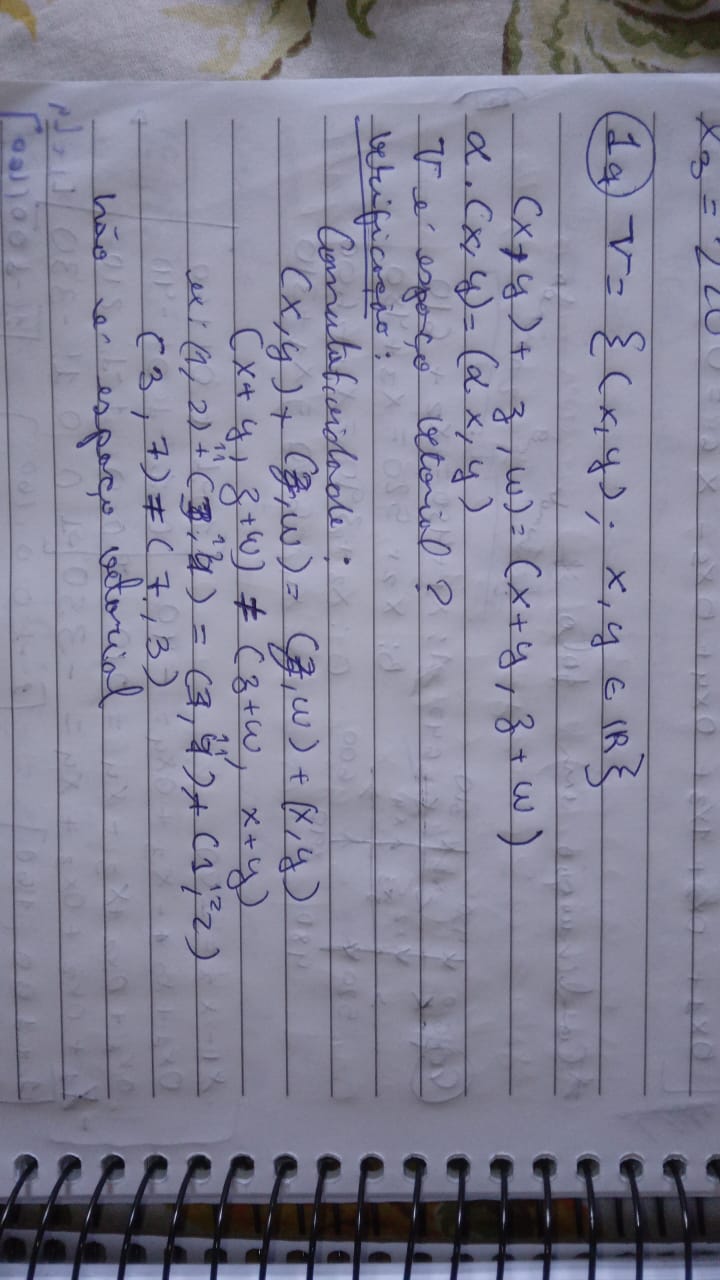 x₃ = 220
1a V = {(x,y); x,y ∈ ℝ}
(x,y)+ z,w)=(x+y, z+w)
α.(x,y)=(αx,y)
V é espaço vetorial?
Verificação:
Comutatividade:
(x,y)+(z,w)=(z,w)+(x,y)
(x+y, z+w) ≠ (z+w, x+y)
ex: (1,2)+(3,4)=(3,4)+(1,2)
(3,7)≠(7,3)
não é espaço vetorial